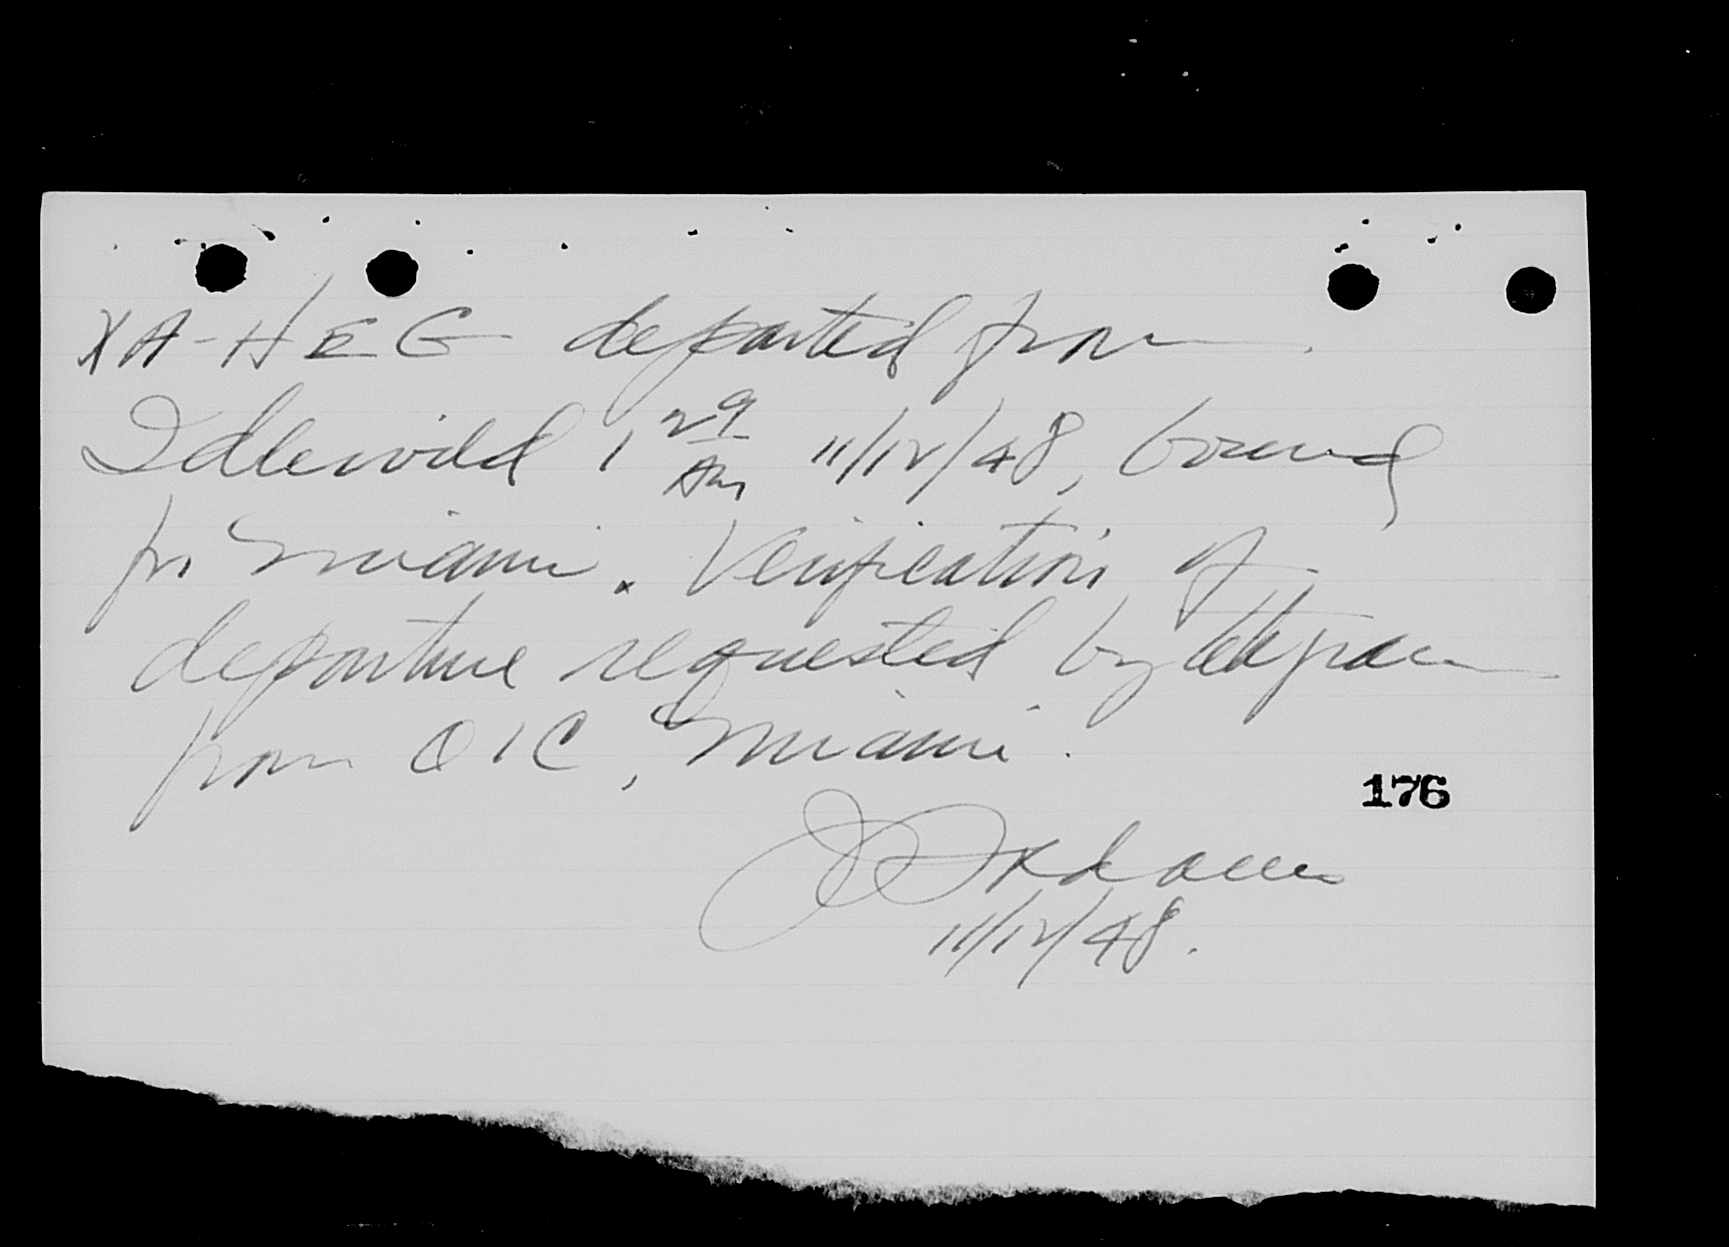 XA-HEG departed from
Idlewild 1 29 AM 11/12/48, bound
for Miami. Verification of
departure requested by
from OIC, Miami.
176
11/12/48.